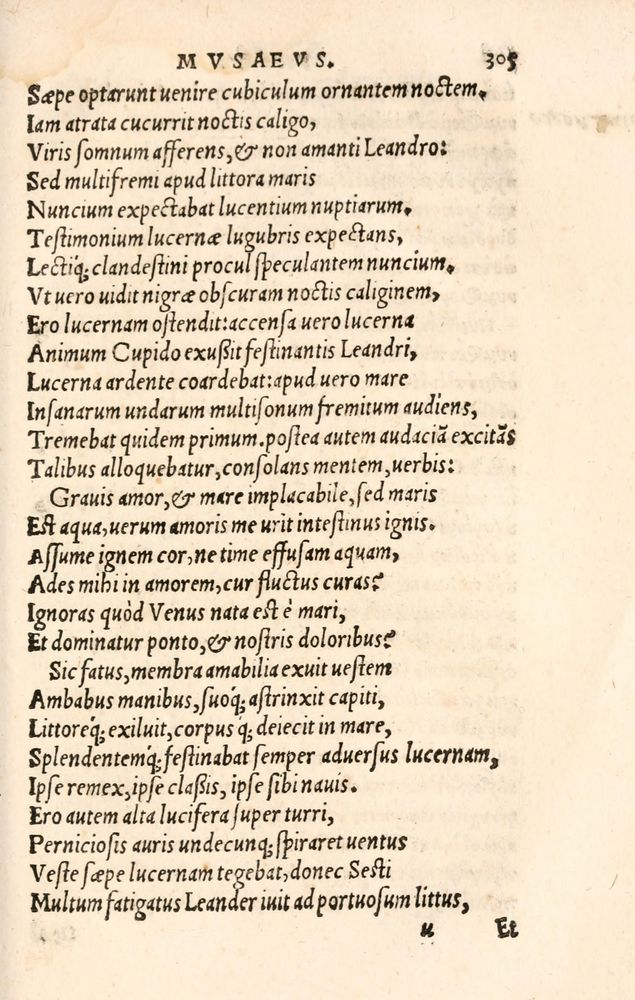 MVSAEVS. 305
Sæpe optarunt uenire cubiculum ornantem noctem.
Iam atrata cucurrit noctis caligo,
Viris ſomnum afferens, & non amanti Leandro:
Sed multifremi apud littora maris
Nuncium expectabat lucentium nuptiarum.
Teſtimonium lucernæ lugubris expectans,
Lectiq́; clandeſtini procul ſpeculantem nuncium.
Vt uero uidit nigræ obſcuram noctis caliginem,
Ero lucernam oſtendit: accenſa uero lucerna
Animum Cupido exußit feſtinantis Leandri,
Lucerna ardente coardebat: apud uero mare
Inſanarum undarum multiſonum fremitum audiens,
Tremebat quidem primum. poſtea autem audaciā excitās
Talibus alloquebatur, conſolans mentem, uerbis:
Grauis amor, & mare implacabile, ſed maris
Eſt aqua, uerum amoris me urit inteſtinus ignis.
Aſſume ignem cor, ne time effuſam aquam,
Ades mihi in amorem, cur fluctus curas?
Ignoras quòd Venus nata eſt è mari,
Et dominatur ponto, & noſtris doloribus?
Sic fatus, membra amabilia exuit ueſtem
Ambabus manibus, ſuoq́; aſtrinxit capiti,
Littoreq́; exiluit, corpus q́; deiecit in mare,
Splendentemq́; feſtinabat ſemper aduerſus lucernam,
Ipſe remex, ipſe claßis, ipſe ſibi nauis.
Ero autem alta lucifera ſuper turri,
Pernicioſis auris undecunq; ſpiraret uentus
Veſte ſæpe lucernam tegebat, donec Seſti
Multum fatigatus Leander iuit ad portuoſum littus,
u Et